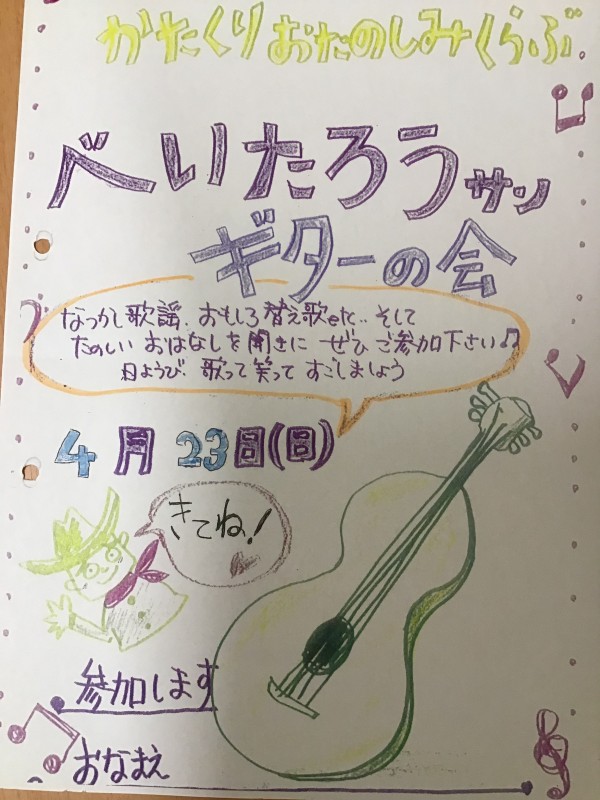 かたくりおたのしみくらぶ
べいたろうサン
ギターの会
なつかし歌謡、おもしろ替え歌etc.. そして
たのしい おはなしを聞きに ぜひ ご参加下さい♫
日ようび 歌って笑って すごしましょう
4月23日(日)
きてね!
参加します
おなまえ